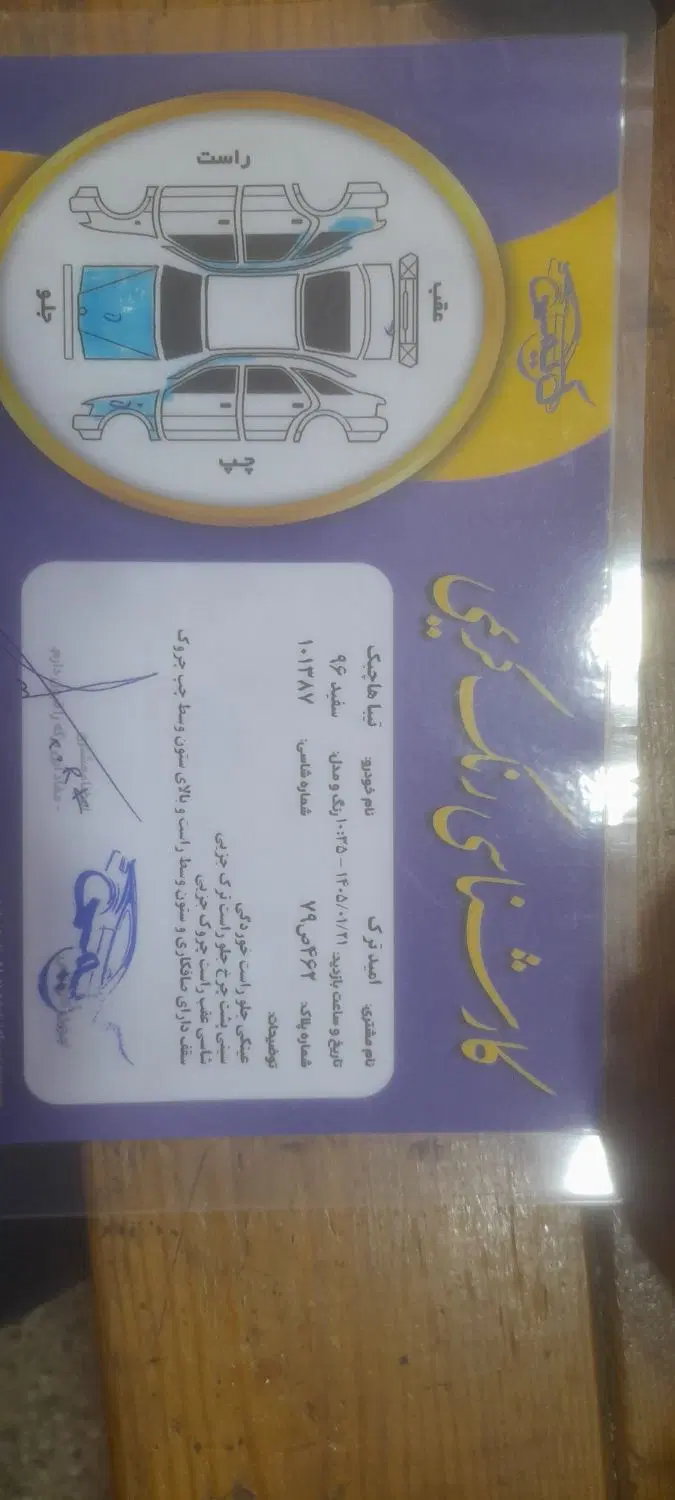 کارشناسی رنگ کریمی
نام مشتری: امید ترک
نام خودرو: تیبا هاچبک
تاریخ و ساعت بازدید: ۱۴۰۵/۰۱/۳۱ – ۱۰:۳۵
رنگ و مدل: سفید ۹۶
شماره پلاک: ۴۶۲ص۷۹
شماره شاسی: ۱۰۱۳۸۷
توضیحات:
عینکی جلو راست خوردگی
سینی پشت چرخ جلو راست ترک جزیی
شاسی عقب راست چروک جزیی
سقف دارای صافکاری و ستون وسط راست و بالای ستون وسط چپ چروک
راست
عقب
جلو
چپ